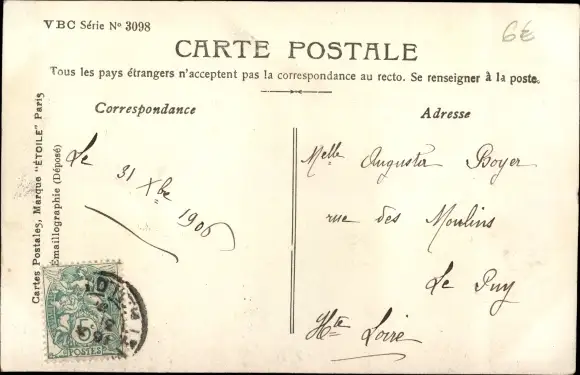 VBC Série Nº 3098
6€
CARTE POSTALE
Tous les pays étrangers n'acceptent pas la correspondance au recto. Se renseigner à la poste.
Correspondance
Adresse
Le 31 Xbre 1906
Melle Augusta Boyer
rue des Moulins
Le Puy
Hte Loire
Cartes Postales, Marque "ÉTOILE" Paris
Émaillographie (Déposé)
5
POSTES